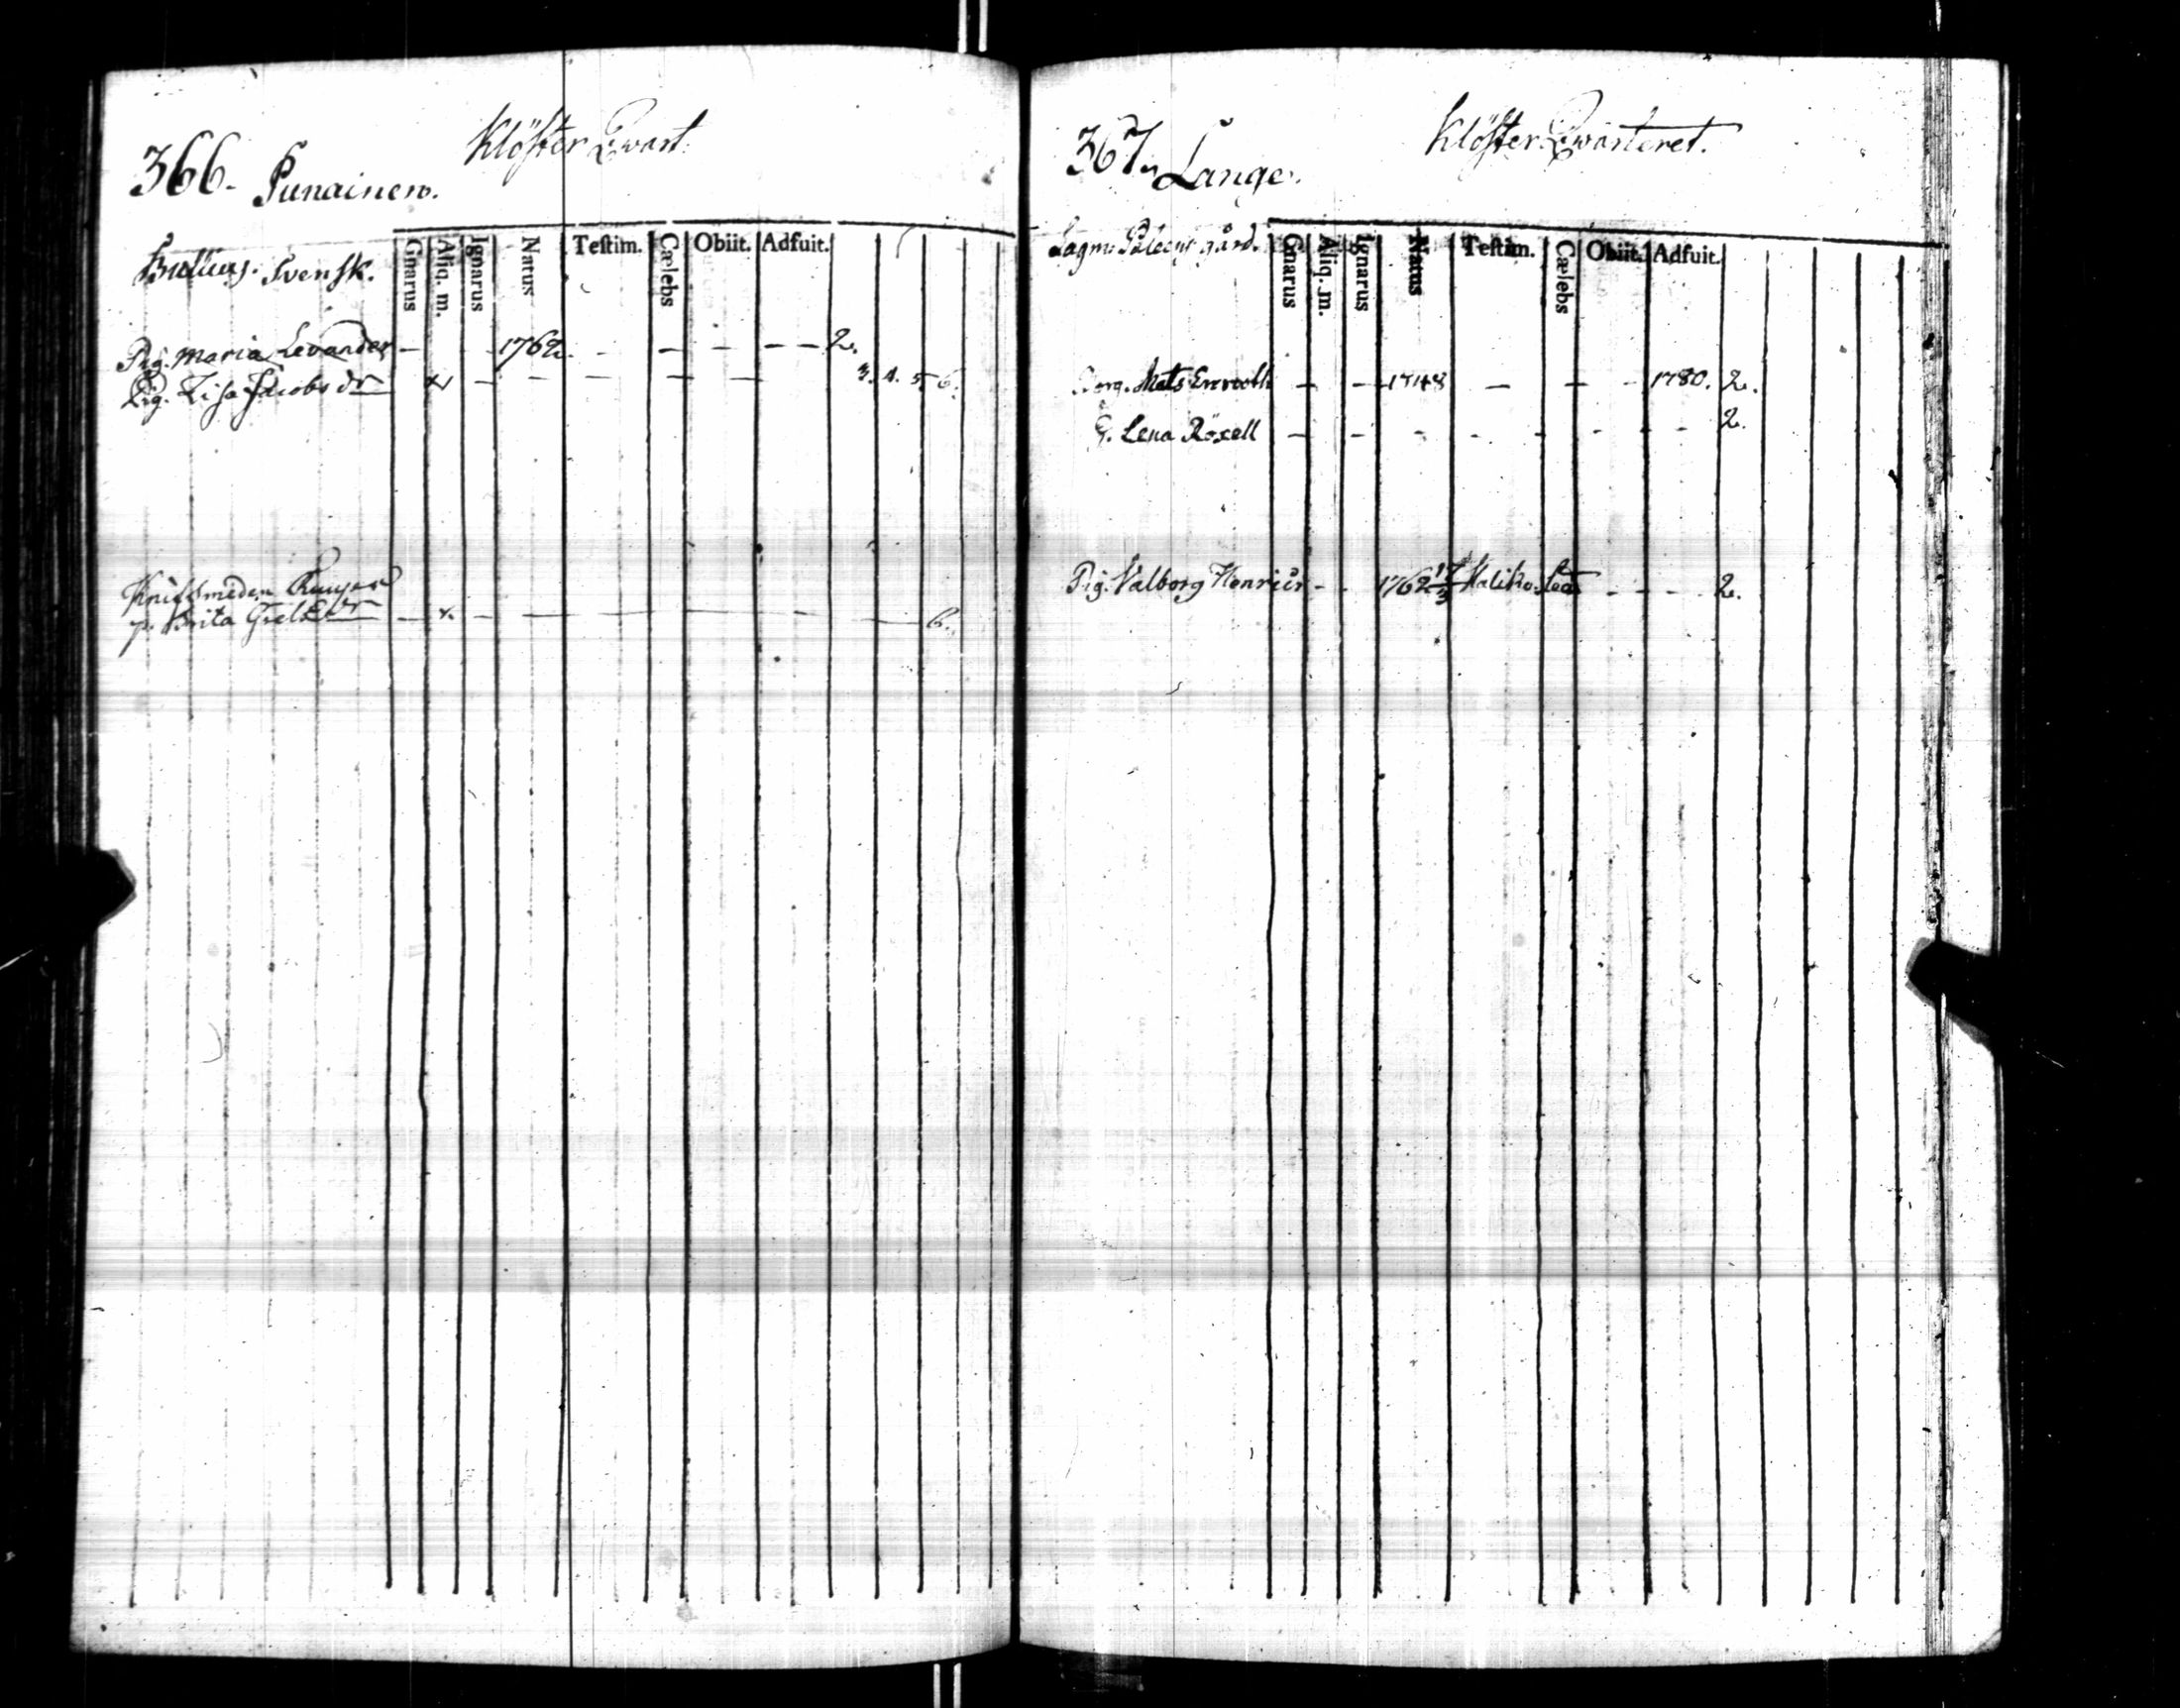 Klöster Qvart.
366. Punainen.
Svensk.
Gnarus Aliq. m. Ignarus Natus Testim. Cælebs Obiit. Adfuit.
Pig. Maria Levander — — 1762. — — — — — 2.
Pig. Lisa Jacobs dr x — — — — — 3. 4. 5. 6.
Knifsmeden
p. Brita — x. — — — — — — 6.
Klöster Qvarteret.
367. Lange.
Lagm: gård.
Gnarus Aliq. m. Ignarus Natus Testim. Cælebs Obiit. Adfuit.
Mats Enrooth — — 1748 — — - 1780. 2.
Lena Röxell — - - - - - - - 2.
Pig. Valborg Henricsr - - 1762 17/3 Haliko. - - - - 2.